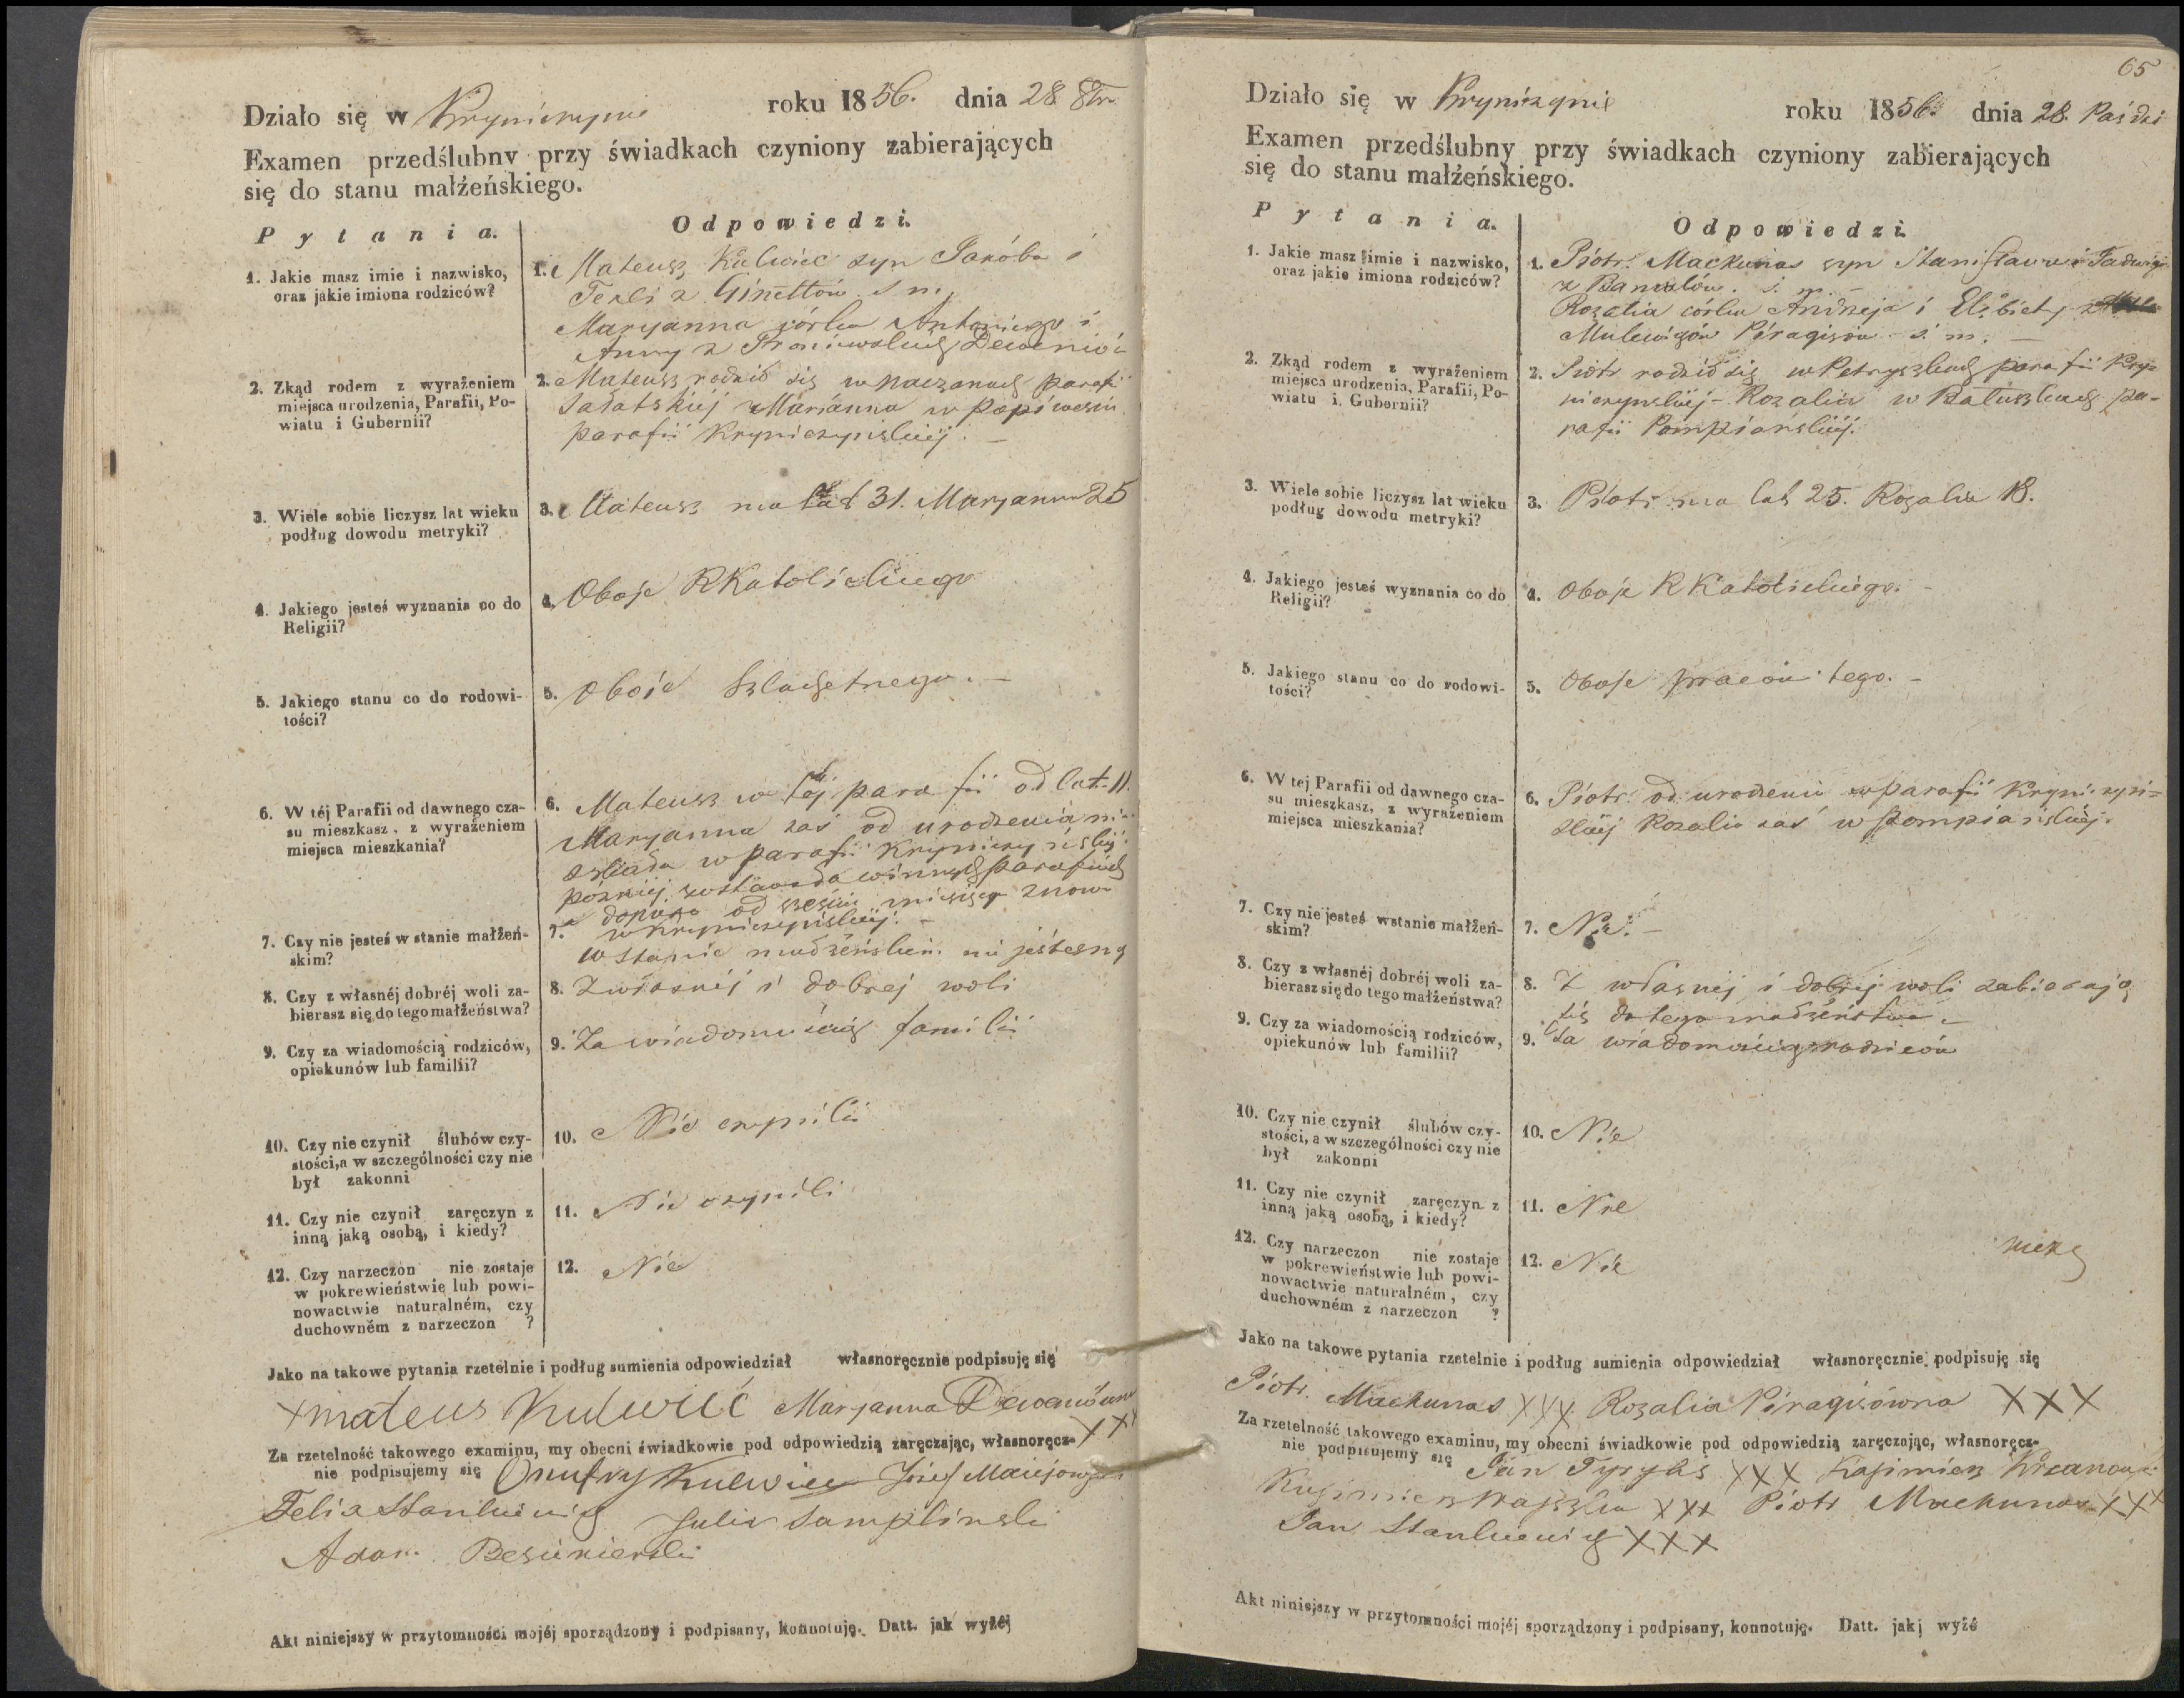 Działo się w Kryniczynie roku 1856. dnia 28. 8br.
Examen przedślubny przy świadkach czyniony zabierających
się do stanu małżeńskiego.
Pytania.
Odpowiedzi.
1. Jakie masz imie i nazwisko,
oraz jakie imiona rodziców?
1. Mateusz Kulwiec syn Jakóba i
Tekli z Ginettów s. m.
Maryanna córka Antoniego i
Anny z
2. Zkąd rodem z wyrażeniem
miejsca urodzenia, Parafii, Po-
wiatu i Gubernii?
2. Mateusz rodził się w parafii
Sałatskiej Marianna w
parafii Kryniczynskiéj. —
3. Wiele sobie liczysz lat wieku
podług dowodu metryki?
3. Mateusz ma lat 31. Maryanna 25
4. Jakiego jesteś wyznania co do
Religii?
4. Oboje RKatolickiego
5. Jakiego stanu co do rodowi-
tości?
5. Oboje Szlachetnego. —
6. W téj Parafii od dawnego cza-
su mieszkasz, z wyrażeniem
miejsca mieszkania?
6. Mateusz w téj parafii od lat 11.
Maryanna zaś od urodzenia
w parafii Kryniczyńskiéj
poźniéj zostawała w innych parafiach
a dopiero od sześciu miesięcy znowu
w Kryniczynskiéj. —
7. Czy nie jesteś w stanie małżeń-
skim?
7. w stanie małżeńskim nie jesteśmy
8. Czy z własnéj dobréj woli za-
bierasz się do tego małżeństwa?
8. Z własnéj i dobrej woli
9. Czy za wiadomością rodziców,
opiekunów lub familii?
9. Za wiadomością familii
10. Czy nie czynił ślubów czy-
stości, a w szczególności czy nie
był zakonni
10. Nie czynili
11. Czy nie czynił zaręczyn z
inną jaką osobą, i kiedy?
11. Nie czynili
12. Czy narzeczon nie zostaje
w pokrewieństwie lub powi-
nowactwie naturalném, czy
duchowném z narzeczon ?
12. Nie
Jako na takowe pytania rzetelnie i podług sumienia odpowiedział własnoręcznie podpisuję się
x mateus Kulwieć Maryanna Dewenówna
XXX
Za rzetelność takowego examinu, my obecni świadkowie pod odpowiedzią zaręczając, własnoręcz-
nie podpisujemy się Onufry Kulwiec Józef
Felix Stankiewicz Julia Samplinski
Adam
Akt niniejszy w przytomności mojéj sporządzony i podpisany, konnotuję. Datt. jak wyżéj
65
Działo się w Kryniczynie roku 1856. dnia 28. Paźdz
Examen przedślubny przy świadkach czyniony zabierających
się do stanu małżeńskiego.
Pytania.
Odpowiedzi.
1. Jakie masz imie i nazwisko,
oraz jakie imiona rodziców?
1. Piotr Mackunas syn Stanisława i Jadwigi
z s. m.
Rozalia córka Andrzeja i Elżbiety z
Mulewiczów Piragisów s. m. —
2. Zkąd rodem z wyrażeniem
miejsca urodzenia, Parafii, Po-
wiatu i Gubernii?
2. Piotr rodził się w Petryszkach parafii Kry-
niczynskiéj — Rozalia w Batuszkach pa-
rafii Pompiańskiéj.
3. Wiele sobie liczysz lat wieku
podług dowodu metryki?
3. Piotr ma lat 25. Rozalia 18.
4. Jakiego jesteś wyznania co do
Religii?
4. Oboje RKatolickiego. —
5. Jakiego stanu co do rodowi-
tości?
5. Oboje pracowitego. —
6. W tej Parafii od dawnego cza-
su mieszkasz, z wyrażeniem
miejsca mieszkania?
6. Piotr od urodzenia w parafii Kryniczyn-
skiéj Rozalia zaś w Pompiańskiéj.
7. Czy nie jesteś w stanie małżeń-
skim?
7. Nie. —
8. Czy z własnéj dobréj woli za-
bierasz się do tego małżeństwa?
8. Z własnéj i dobréj woli zabierają
się do tego małżeństwa. —
9. Czy za wiadomością rodziców,
opiekunów lub familii?
9. Za wiadomością rodziców
10. Czy nie czynił ślubów czy-
stości, a w szczególności czy nie
był zakonni
10. Nie
11. Czy nie czynił zaręczyn z
inną jaką osobą, i kiedy?
11. Nie
12. Czy narzeczon nie zostaje
w pokrewieństwie lub powi-
nowactwie naturalném, czy
duchowném z narzeczon ?
12. Nie
Jako na takowe pytania rzetelnie i podług sumienia odpowiedział własnoręcznie podpisuję się
Piotr Mackunas XXX Rozalia Piragisówna XXX
Za rzetelność takowego examinu, my obecni świadkowie pod odpowiedzią zaręczając, własnoręcz-
nie podpisujemy się Jan XXX Kazimierz
Kazimierz XXX Piotr Mackunas XXX
Jan Stankiewicz XXX
Akt niniejszy w przytomności mojéj sporządzony i podpisany, konnotuję. Datt. jakj wyżé